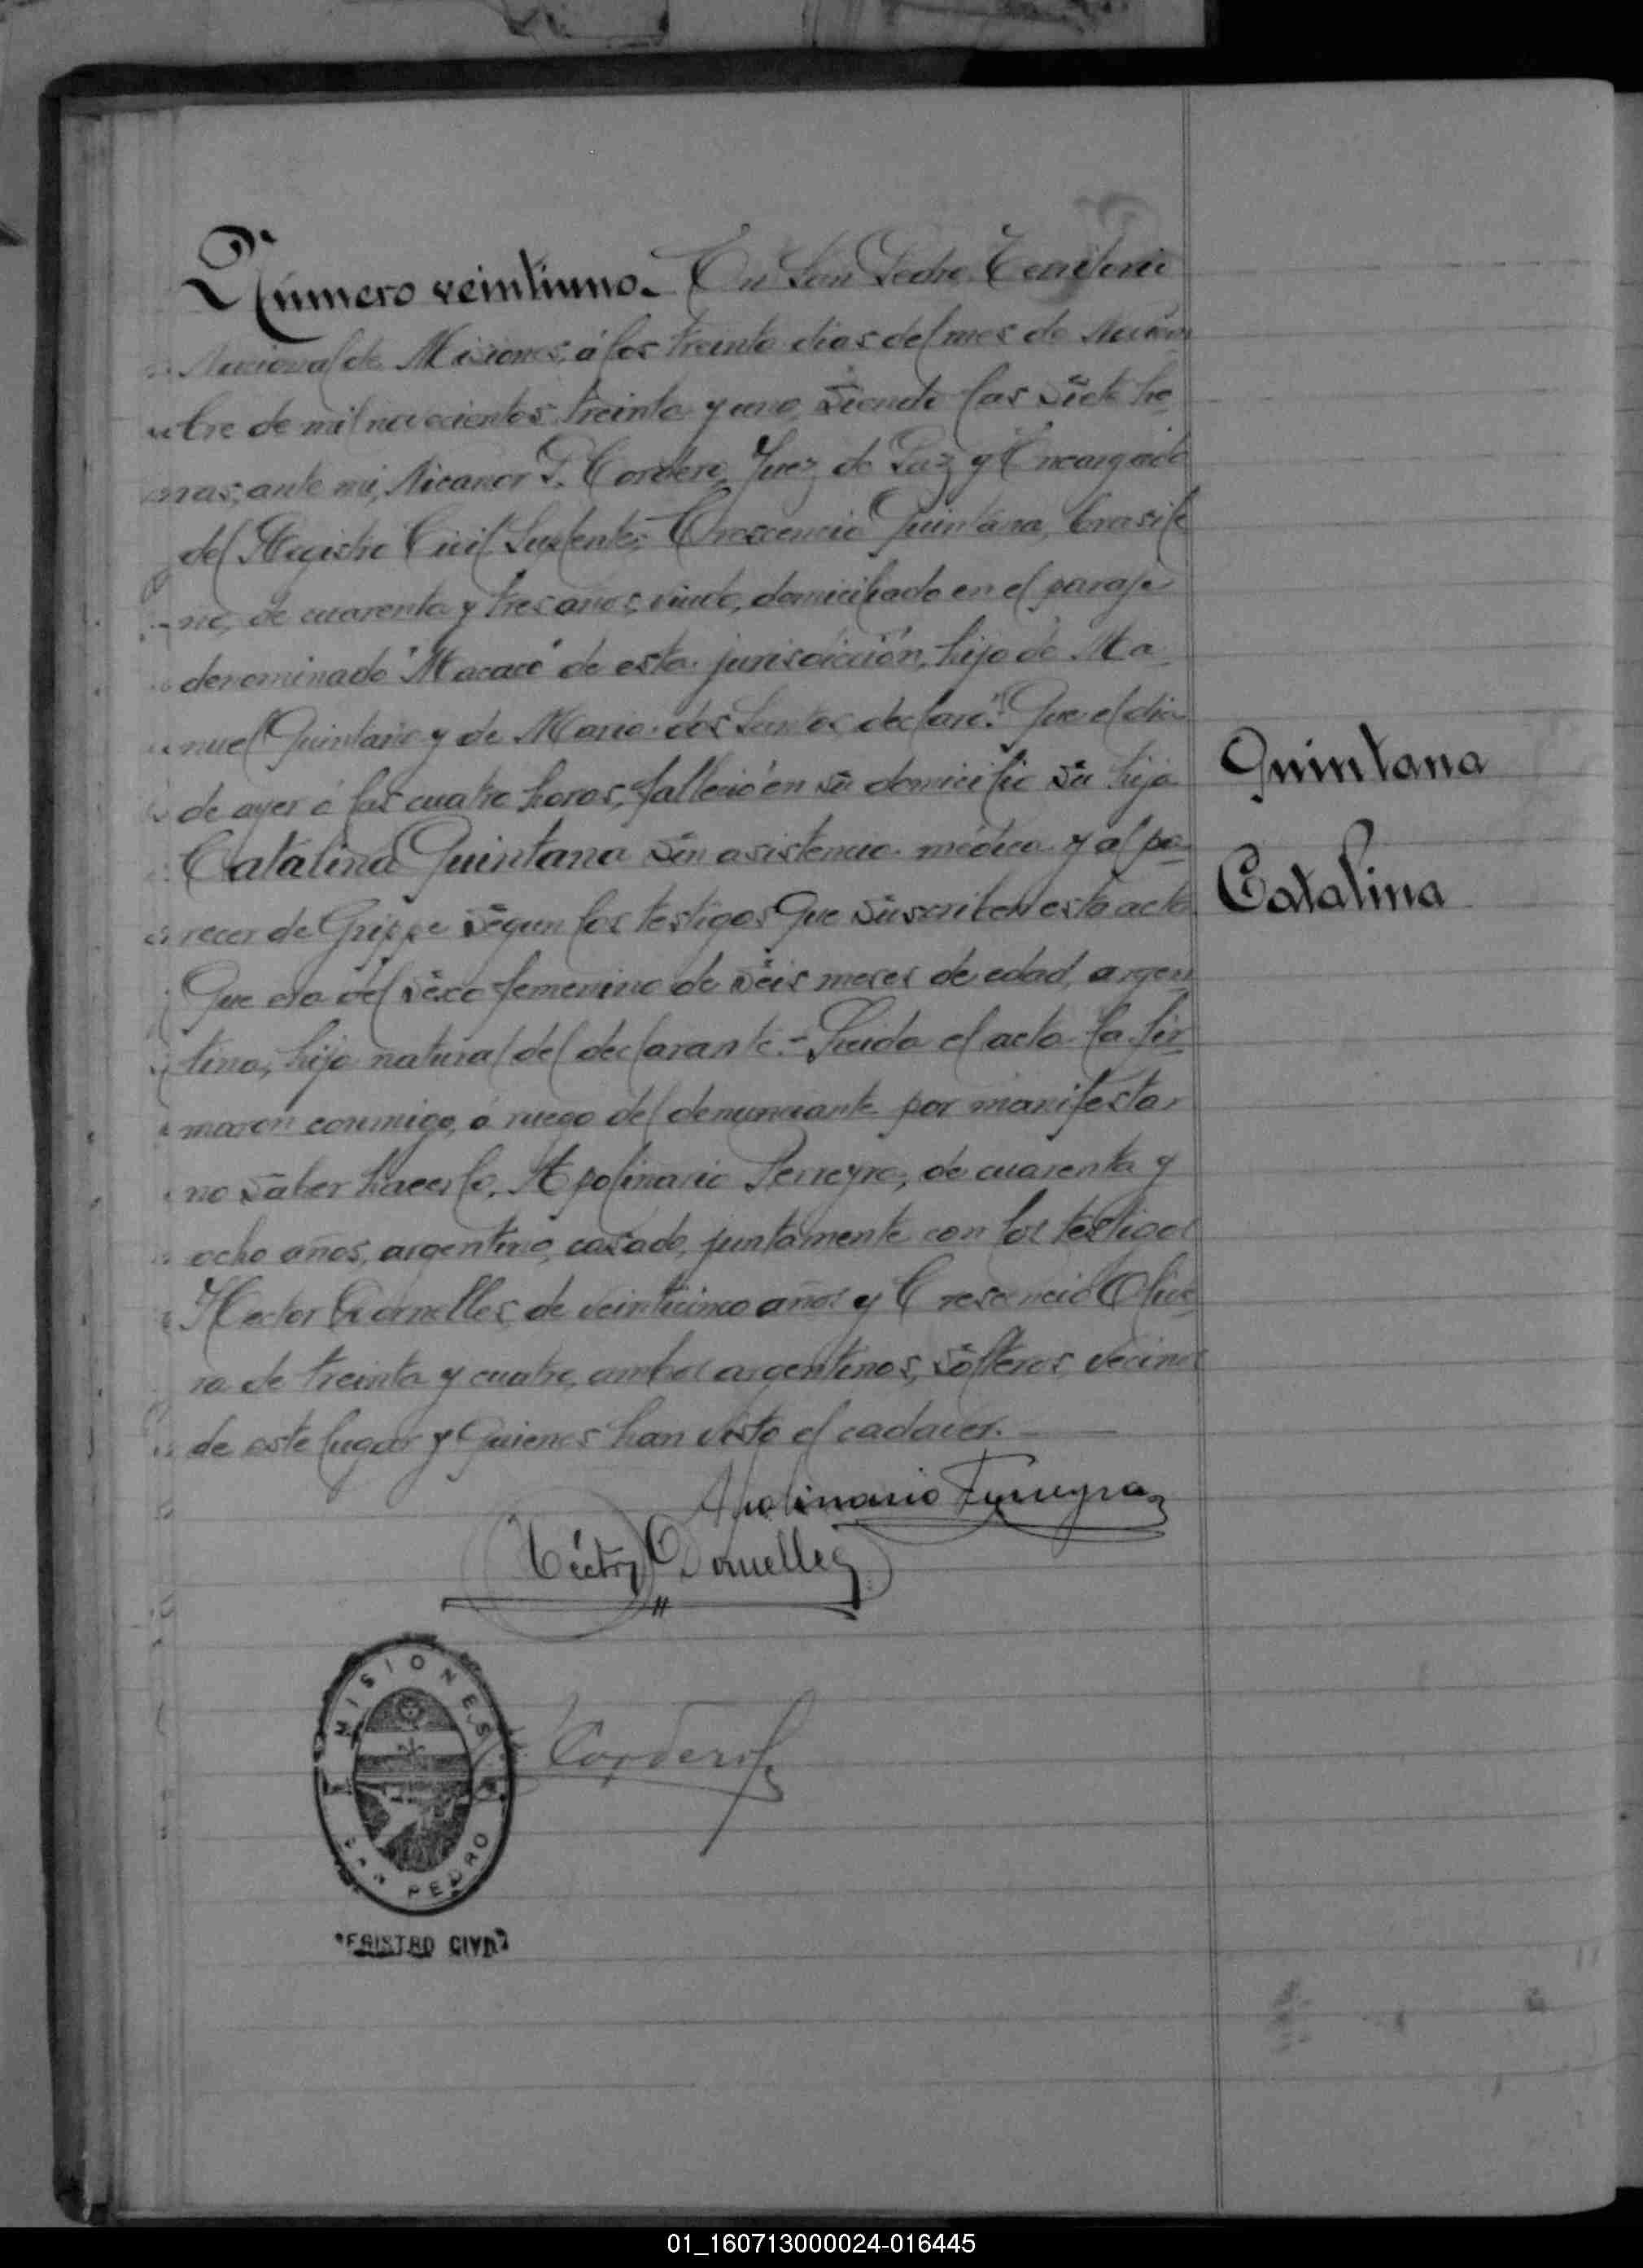 Número veintiuno.- En San Pedro, Territorio
Nacional de Misiones, á los treinta dias del mes de Noviem
bre de mil novecientos treinta y uno, siendo las siete ho-
ras, ante mi, Nicanor P. Cordero, Juez de Paz y Encargado
del Registro Civil Suplente, Crescencio Quintana, brasile
no, de cuarenta y tres años, viudo, domiciliado en el paraje
denominado "Macaco" de esta jurisdicción, hijo de Ma-
nuel Quintana y de Maria dos Santos, declaró: Que el dia
de ayer á las cuatro horas, falleció en su domicilio su hija
Catalina Quintana sin asistencia médica y al pa-
recer de Grippe segun los testigos que suscriben esta acta.
Que era del sexo femenino de seis meses de edad, argen
tina, hija natural del declarante.- Leida el acta la fir-
maron conmigo, á ruego del denunciante por manifestar
no saber hacerlo, Apolinario Ferreyra, de cuarenta y
ocho años, argentino, casado, juntamente con los testigos
Hector Dornelles, de veinticinco años y Crescencio Olive-
ra de treinta y cuatro, ambos argentinos, solteros, vecinos
de este lugar y quienes han visto el cadaver.
Quintana
Catalina
Apolinario Ferreyra
Héctor Dornelles
Cordero
MISIONES
SAN PEDRO
REGISTRO CIVIL
01_160713000024-016445